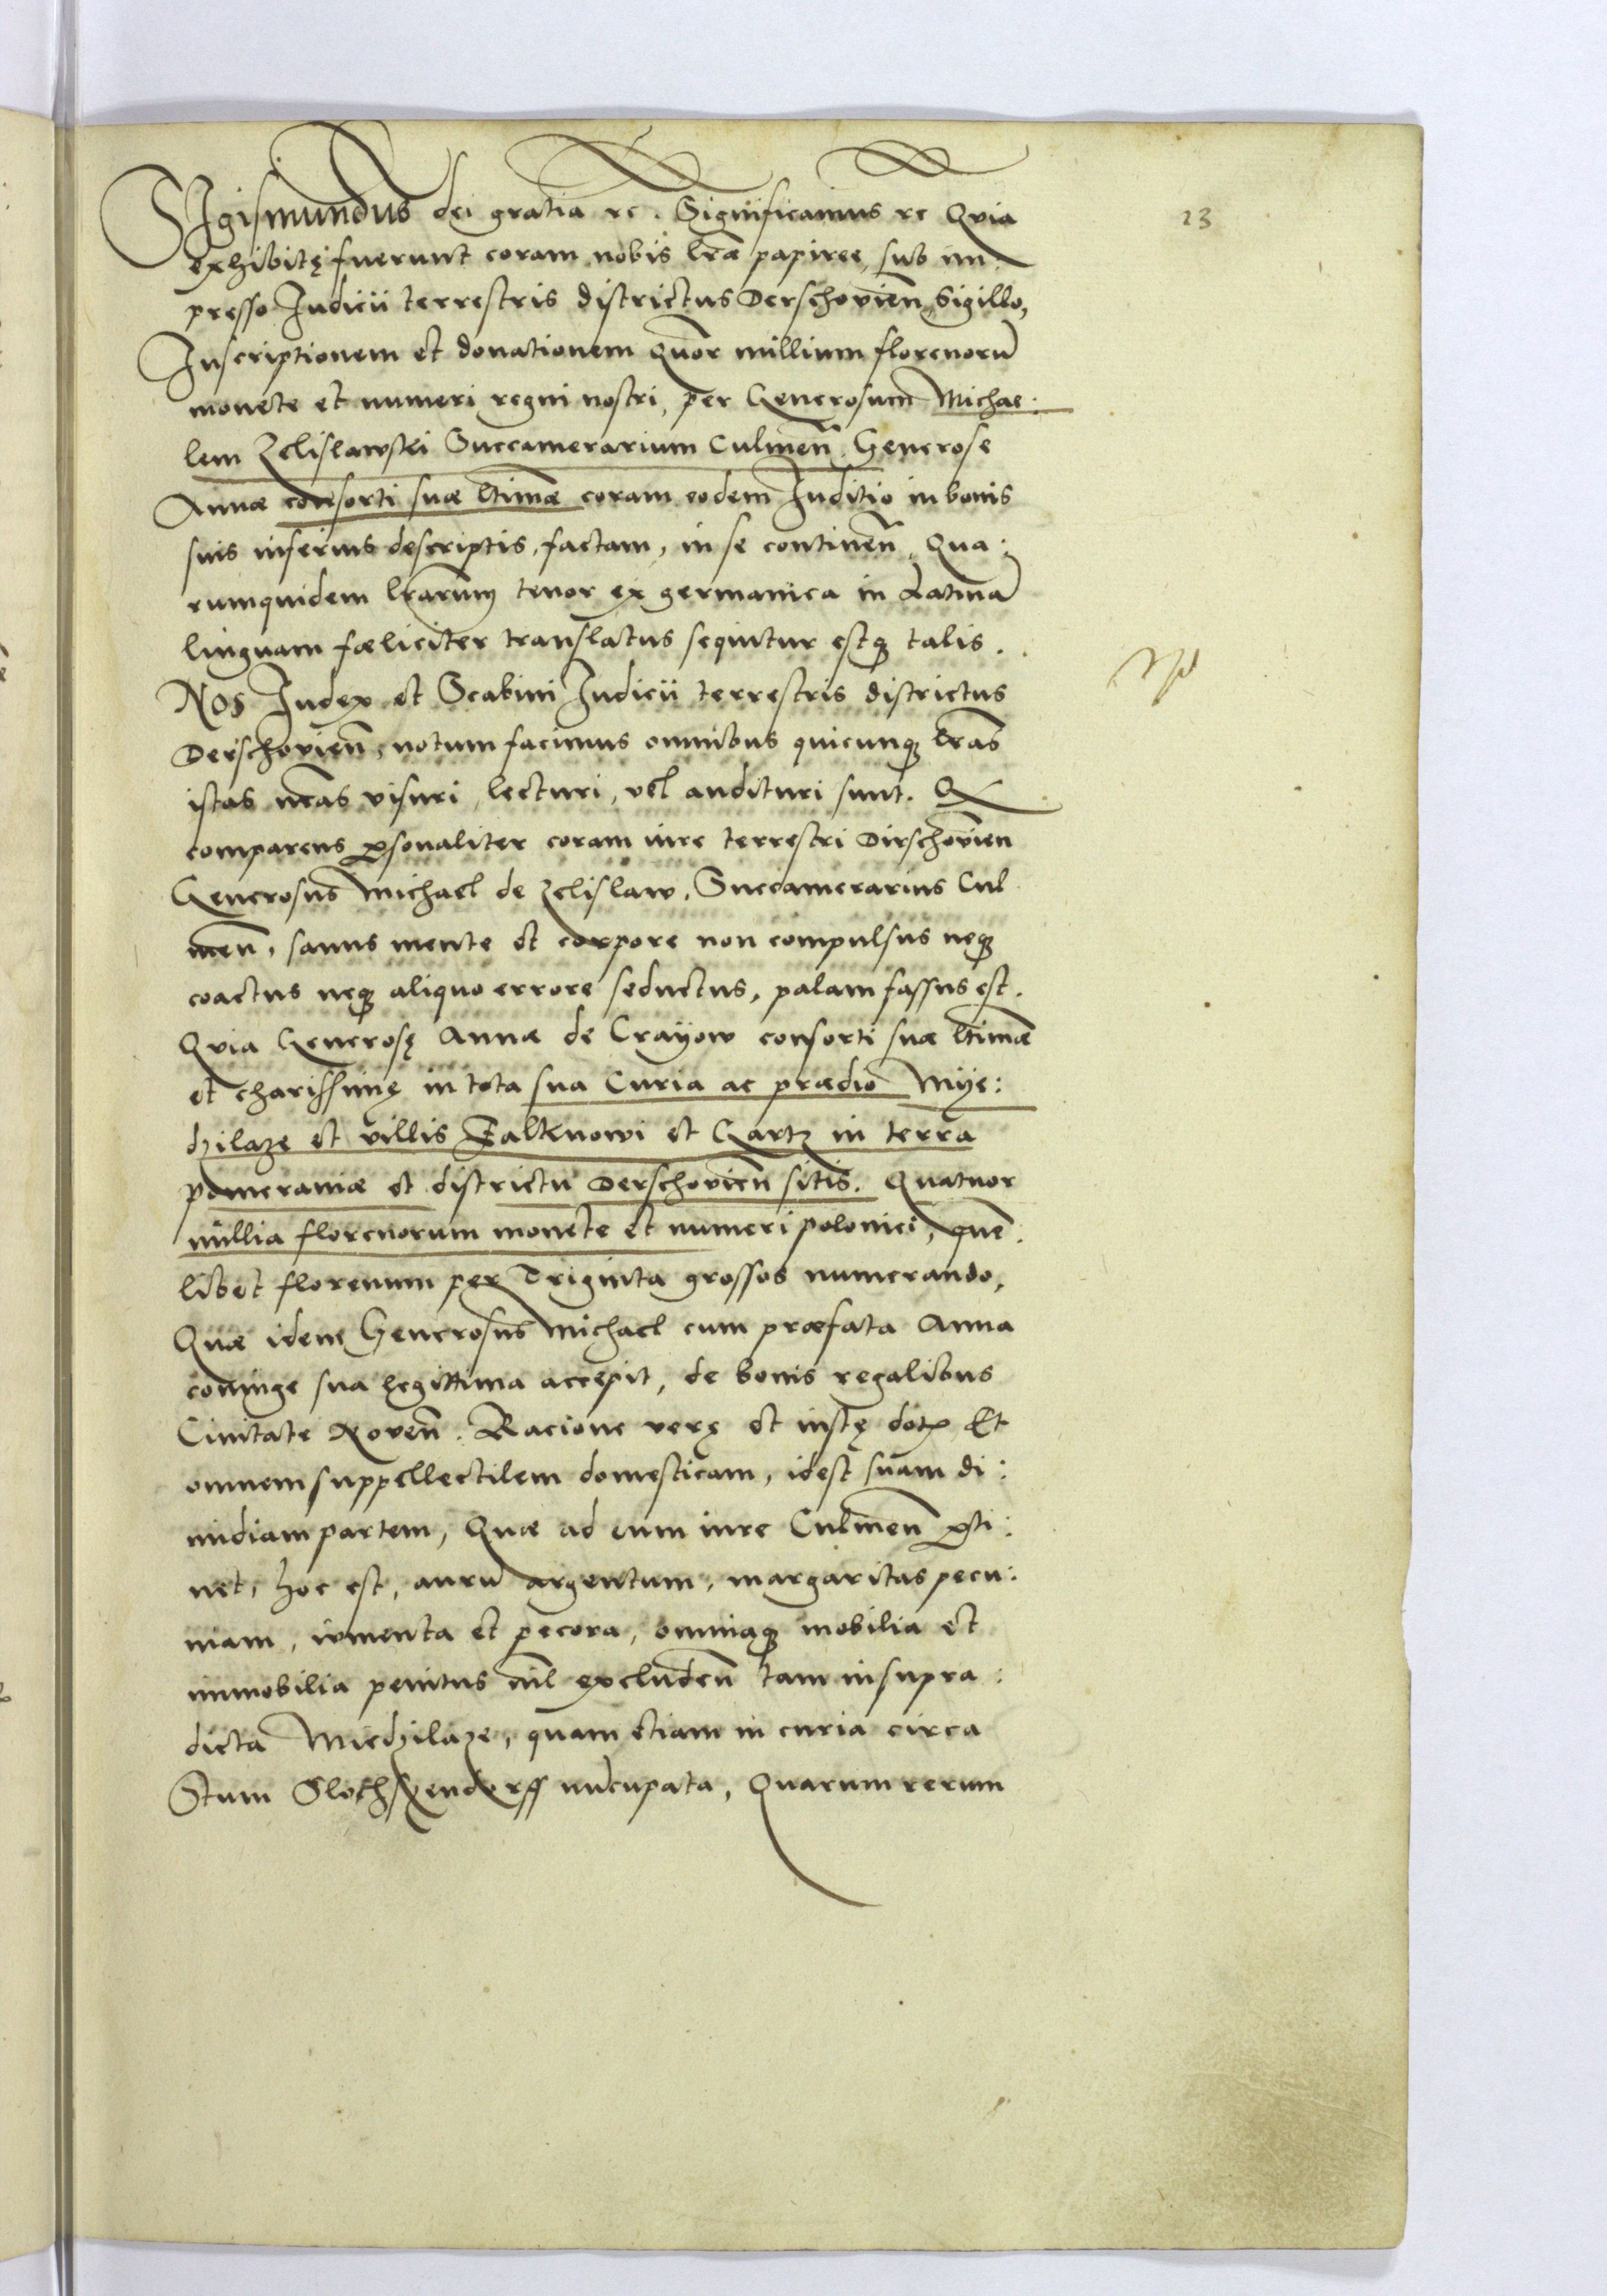 SIgismundus dei gratia rc. Significamus rc Quia
23
exhibitę fuerunt coram nobis lræ papiree, sub im:
presso Iudicii terrestris districtus Derschovien̄ Sigillo,
Inscriptionem et donationem Quor millium florenorū
monete et numeri regni nostri, per Generosum Michae:
lem Zelislawski Succamerarium Culmen̄. Generose
Annæ consorti suæ ltimæ coram eodem Iuditio in bonis
suis inferius descriptis, factam, in se continen̄, Qua:
rumquidem lrarum tenor ex germanica in Latinā
linguam fœliciter translatus sequitur estq talis.
Nos Iudex et Scabini Iudicii terrestris districtus
Derschovien̄, notum facimus omnibus quicunq lras
istas nras visuri, lecturi, vel audituri sunt. Q
comparens psonaliter coram iure terrestri Dirschovien
Generosus Michael de Zelislaw, Succamerarius Cul
men̄, sanus mente et corpore non compulsus neq
coactus neq aliquo errore seductus, palam fassus est.
Quia Generosę Annæ de Crayow consorti suæ ltimæ
et charissimę in tota sua Curia ac prædio Mye:
dzilaze et villis Falknowi et Gartz in terra
pomeraniæ et districtu Derschovien̄ sitis. Quatuor
millia florenorum monete et numeri polonici, quē
libet florenum per Triginta grossos numerando,
Quæ idem Generosus Michael cum præfata Anna
coniuge sua legittima accepit, de bonis regalibus
Civitate Noven̄. Racione verę et iustę dotis Et
omnem suppellectilem domesticam, idest suam di:
midiam partem, Quæ ad eum iure Culmen̄ pti:
net, hoc est, aurū argentum, margaritas pecu:
niam, iumenta et pecora, omniaq mobilia et
immobilia penitus nil excluden̄ tam in supra:
dicta Miedzilaze, quam etiam in curia circa
Stum Slothzendorff nūcupata, Quarum rerum